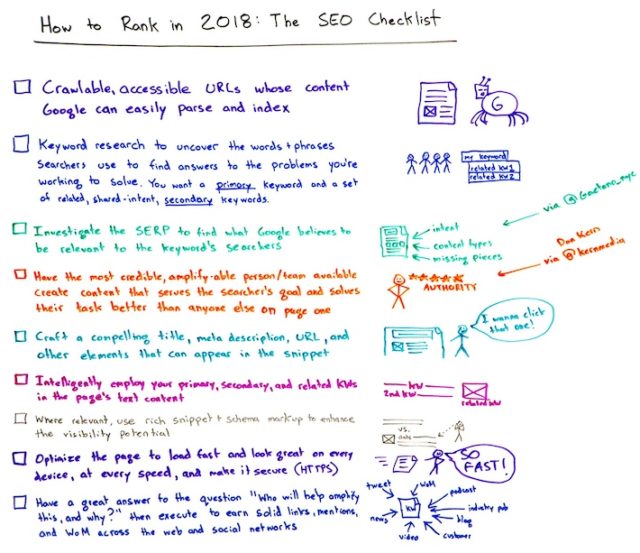 How to Rank in 2018: The SEO Checklist
Crawlable, accessible URLs whose content
Google can easily parse and index
G
Keyword research to uncover the words + phrases
Searchers use to find answers to the problems you're
working to solve. You want a primary keyword and a set
of related, shared-intent, secondary keywords.
my keyword
related kw1
related kw2
Investigate the SERP to find what Google believes to
be relevant to the keyword's searchers
intent
content types
missing pieces
via @Gaetano_nyc
Have the most credible, amplify-able person/team available
create content that serves the searcher's goal and solves
their task better than anyone else on page one
AUTHORITY
Dan Kern
via @kernmedia
Craft a compelling title, meta description, URL, and
other elements that can appear in the snippet
I wanna click
that one!
Intelligently employ your primary, secondary, and related KWs
in the page's text content
KW
2nd KW
related KW
Where relevant, use rich snippet + schema markup to enhance
the visibility potential
vs.
Optimize the page to load fast and look great on every
device, at every speed, and make it secure (HTTPS)
SO
FAST!
Have a great answer to the question "Who will help amplify
this, and why?" then execute to earn solid links, mentions,
and WoM across the web and social networks
tweet
WoM
podcast
KW
industry pub
news
blog
video
customer